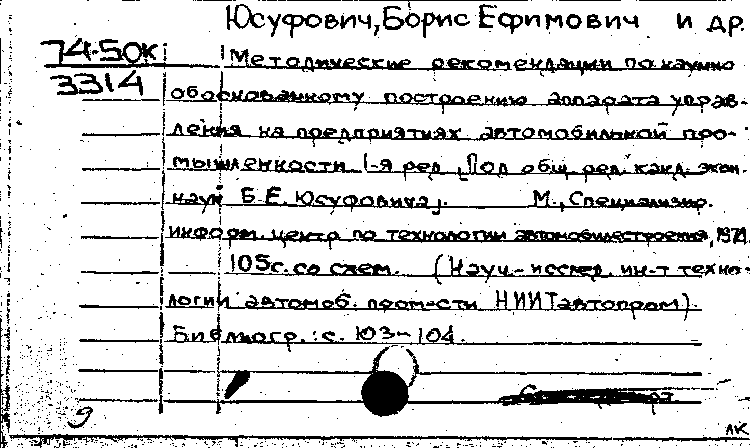 Юсуфович, Борис Ефимович и др.
74-50К
3314
Методические рекомендации по научно
обоснованному построению аппарата управ-
ления на предприятиях автомобильной про-
мышленности 1-я ред. [Под общ. ред. канд. экон.
наук Б. Е. Юсуфовича]. М., Специализир.
информ. центр по технологии автомобилестроения, 1971.
105 с. со схем. (Науч.-исслед. ин-т техно-
логии автомоб. пром-сти НИИТавтопром).
Библиогр.: с. 103-104.
9
ЛК